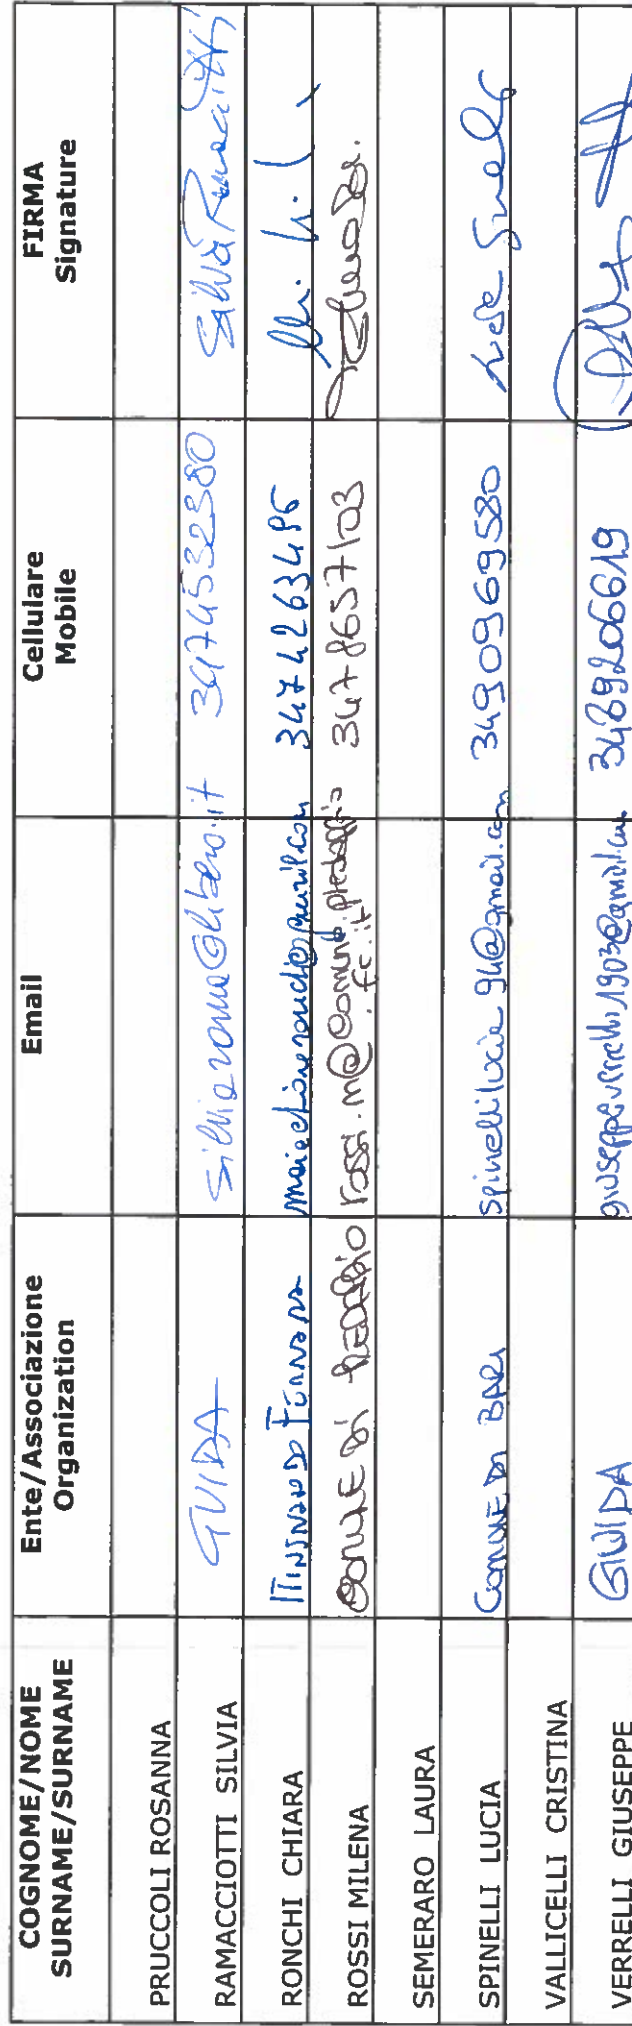 COGNOME/NOME SURNAME/SURNAME Ente/Associazione Organization Email Cellulare Mobile FIRMA Signature
PRUCCOLI ROSANNA
RAMACCIOTTI SILVIA GUIDA silviaroma@libero.it 3474532380 Silvia Ramacciotti
RONCHI CHIARA 3474263496
ROSSI MILENA COMUNE DI PREDAPPIO rossi.m@comune.predappio.fc.it 3478657103
SEMERARO LAURA
SPINELLI LUCIA COMUNE DI BARI spinellilucia94@gmail.com 3490969580
VALLICELLI CRISTINA
VERRELLI GIUSEPPE GUIDA giuseppeverrelli1903@gmail.com 3489206619